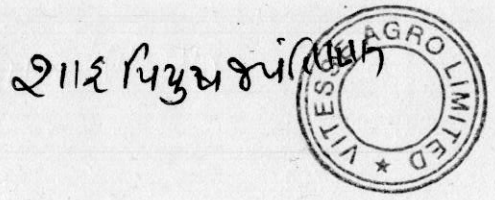 શાહ પિયુષ શાંતિલાલ
VITESSE AGRO LIMITED ★